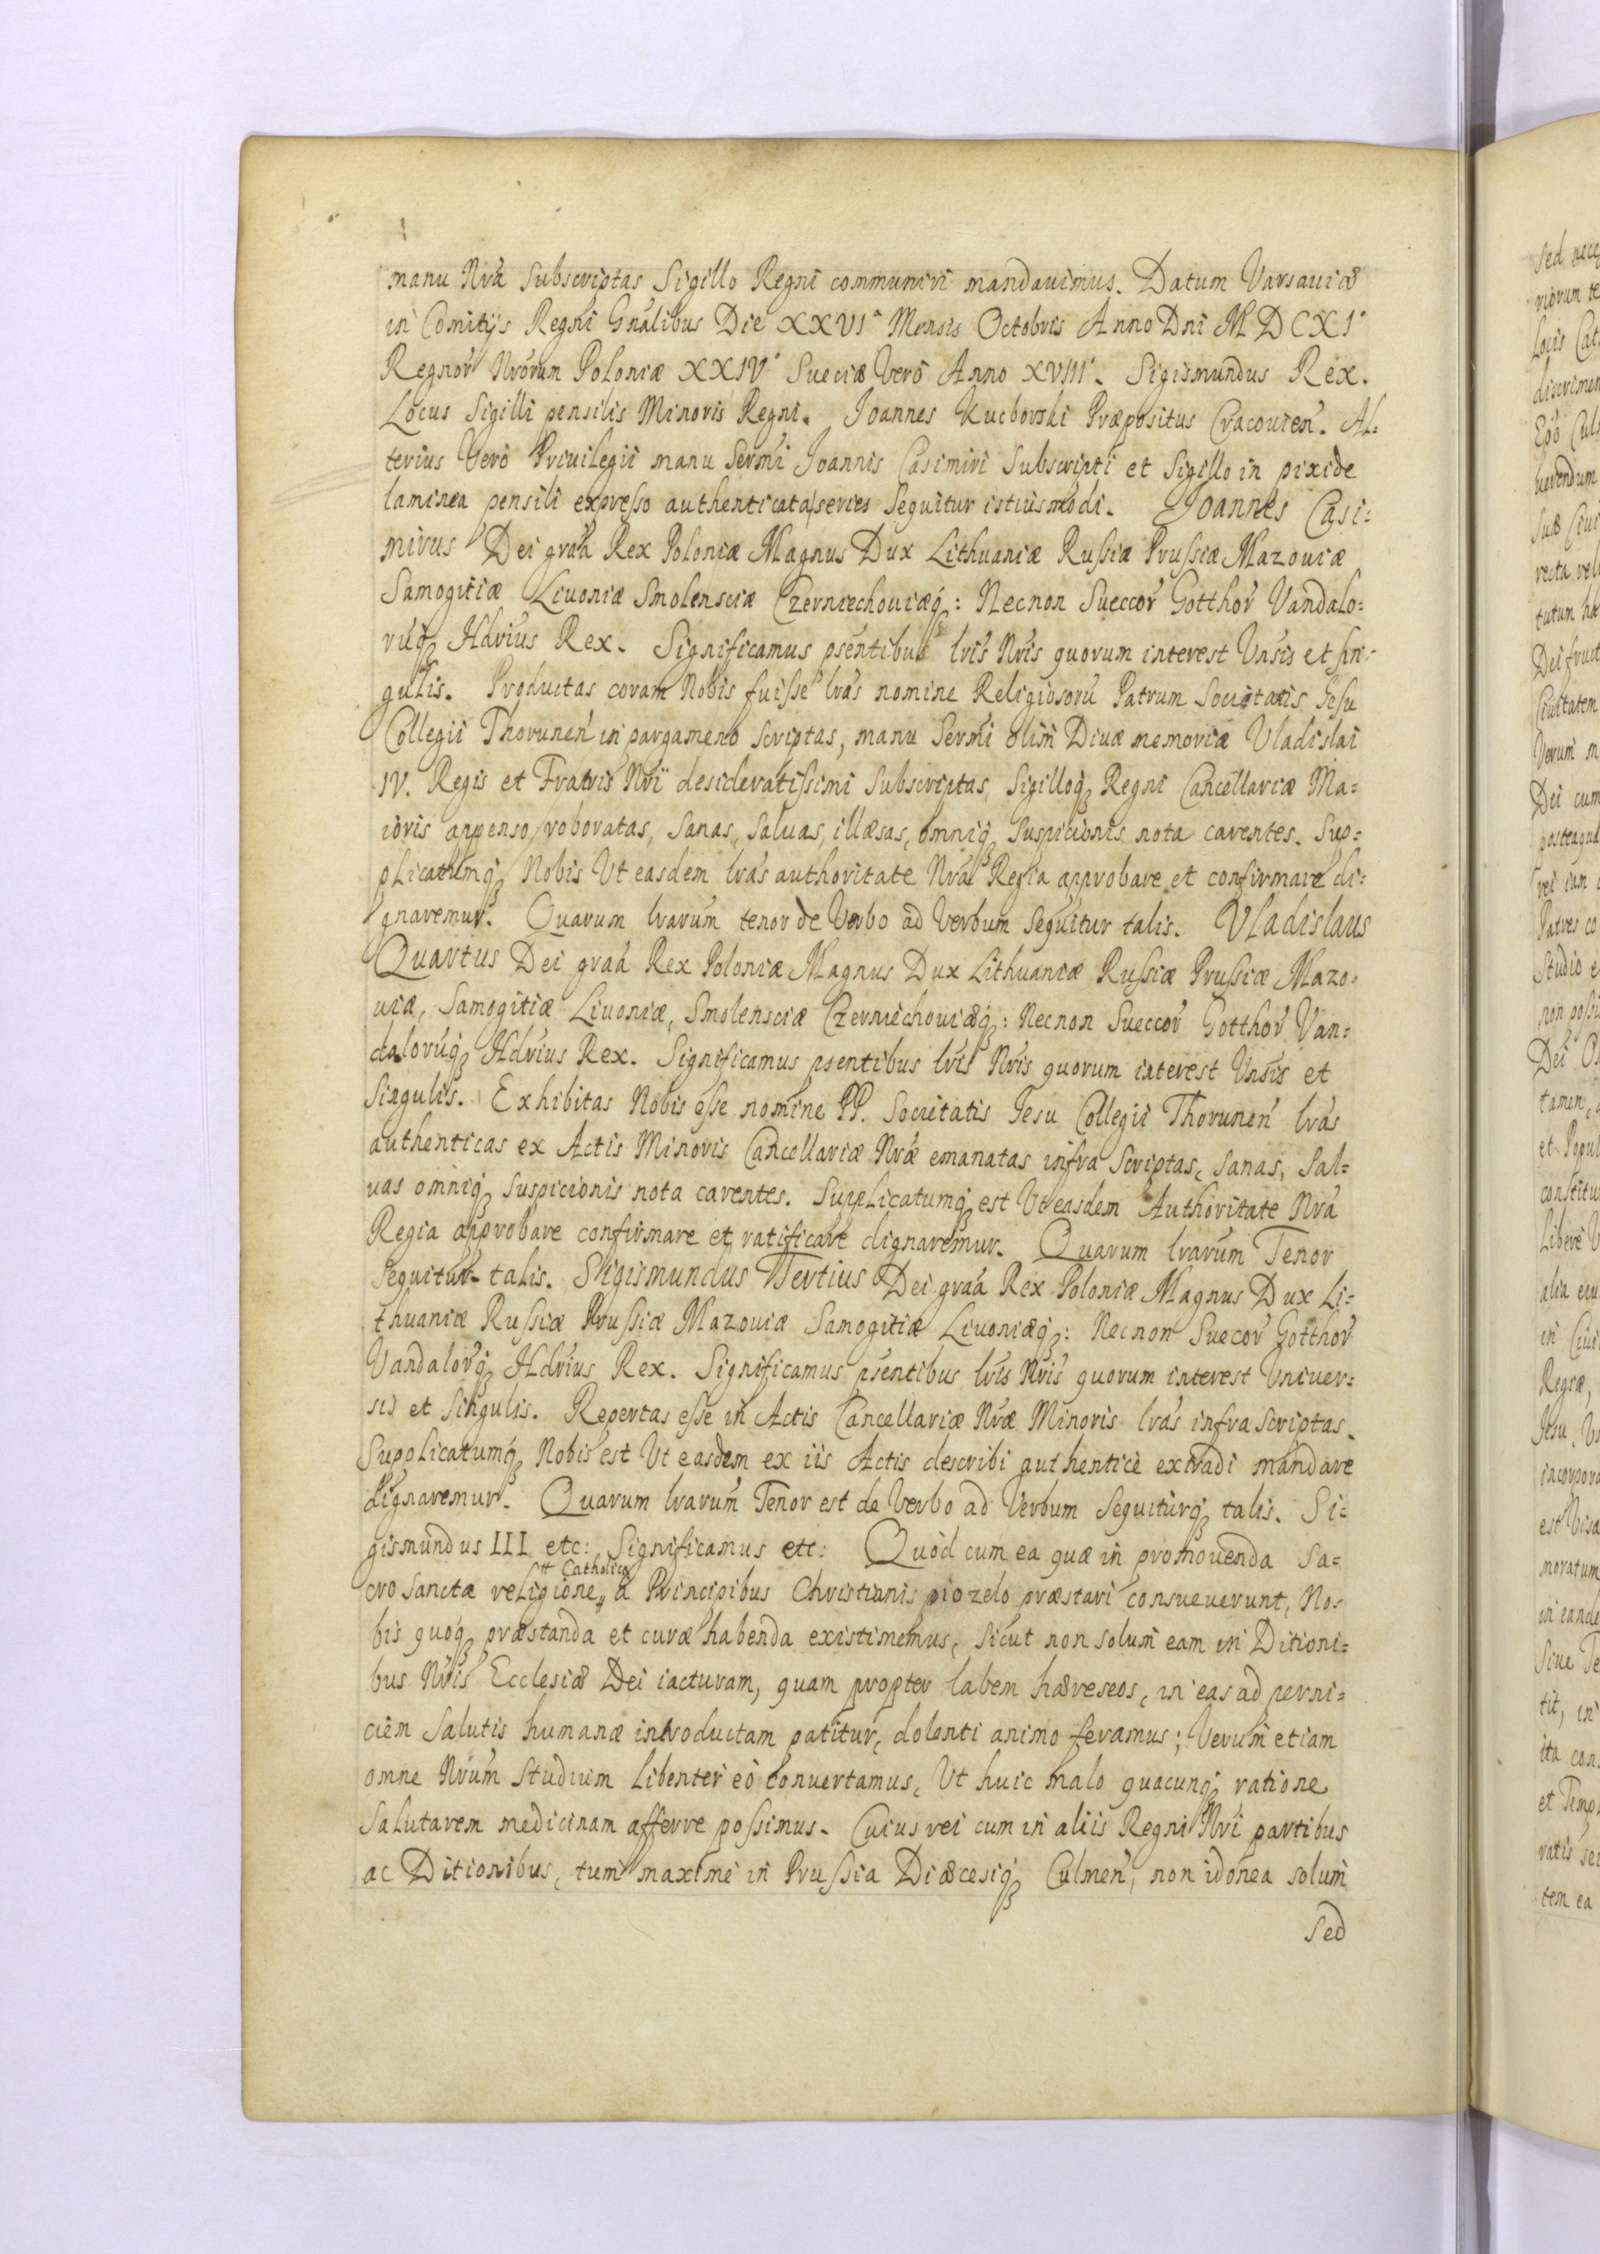 manu Nrá Subscriptas Sigillo Regni communiri mandauimus. Datum Varsauiæ
in Comitijs Regni Gnalibus Die XXVIª Mensis Octobris Anno Dni MDCXIº
Regnor Nrórum Poloniæ XXIVº Sueciæ Verò Anno XVIIIº. Sigismundus Rex.
Locus Sigilli pensilis Minoris Regni. Joannes Kucborski Præpositus Cracouień. Al=
terius Verò Priuilegii manu Sermi Joannis Casimiri Subscripti et Sigillo in pixide
laminea pensili expresso authenticata series Sequitur istiusmodi. Joannes Casi=
mirus Dei graá Rex Poloniæ Magnus Dux Lithuaniæ Russiæ Prussiæ Mazouiæ
Samogitiæ Liuoniæ Smolensciæ Czerniechouiæq: Necnon Sueccor Gotthor Vandalo=
ruq Hdrius Rex. Significamus psentibus lris Nris quorum interest Vnsis et sin=
gulis. Productas coram Nobis fuisse lras nomine Religiosorū Patrum Societatis Jesu
Collegii Thorunen in pargameno scriptas, manu Sermi olim Diuæ memoriæ Vladislai
IV. Regis et Fratris Nri desideratissimi Subscriptas, Sigilloq Regni Cancellariæ Ma=
ioris appenso roboratas, Sanas, Saluas, illæsas, omniq Suspicionis nota carentes. Sup=
plicatumq Nobis Ut easdem lras authoritate Nra Regia approbare et confirmare di=
gnaremur. Quarum lrarum tenor de Verbo ad Verbum sequitur talis. Vladislaus
Quartus Dei graá Rex Poloniæ Magnus Dux Lithuaniæ Russiæ Prussiæ Mazo=
uiæ, Samogitiæ Liuoniæ, Smolensciæ Czerniechouiæq: Necnon Sueccor Gotthor Van=
daloruq Hdrius Rex. Significamus psentibus lris Nris quorum interest Vnsis et
Singulis. Exhibitas Nobis esse nomine PP. Societatis Jesu Collegii Thorunen lras
authenticas ex Actis Minoris Cancellariæ Nræ emanatas infra Scriptas, sanas, Sal=
uas omniq suspicionis nota carentes. Supplicatumq est Ut easdem Authoritate Nra
Regia approbare confirmare et ratificare dignaremur. Quarum lrarum Tenor
sequitur talis. Sigismundus Tertius Dei graá Rex Poloniæ Magnus Dux Li=
thuaniæ Russiæ Prussiæ Mazouiæ Samogitiæ Liuoniæq: Necnon Suecor Gotthor
Vandalorq Hdrius Rex. Significamus psentibus lris Nris quorum interest Vniuer=
sis et Singulis. Repertas esse in Actis Cancellariæ Nræ Minoris lras infra scriptas.
Supplicatumq Nobis est Ut easdem ex iis Actis describi authenticè extradi mandare
dignaremur. Quarum lrarum Tenor est de Verbo ad Verbum Sequiturq talis. Si=
gismundus III etc: Significamus etc: Quòd cum ea quæ in promouenda Sa=
Catholica
crosancta religione, à Principibus Christianis pio zelo præstari consueuerunt, No=
bis quoq præstanda et curæ habenda existimemus, Sicut non solum eam in Ditioni=
bus Nris Ecclesiæ Dei iacturam, quam propter labem hæreseos, in eas ad perni=
ciem Salutis humanæ introductam patitur, dolenti animo feramus; Verum etiam
omne Nrum studium libenter eò conuertamus, Ut huic malo quacunq ratione
Salutarem medicinam afferre possimus. Cuius rei cum in aliis Regni Nri partibus
ac Ditionibus, tum maximè in Prussia Diæcesiq Culmen, non idonea solum
Sed